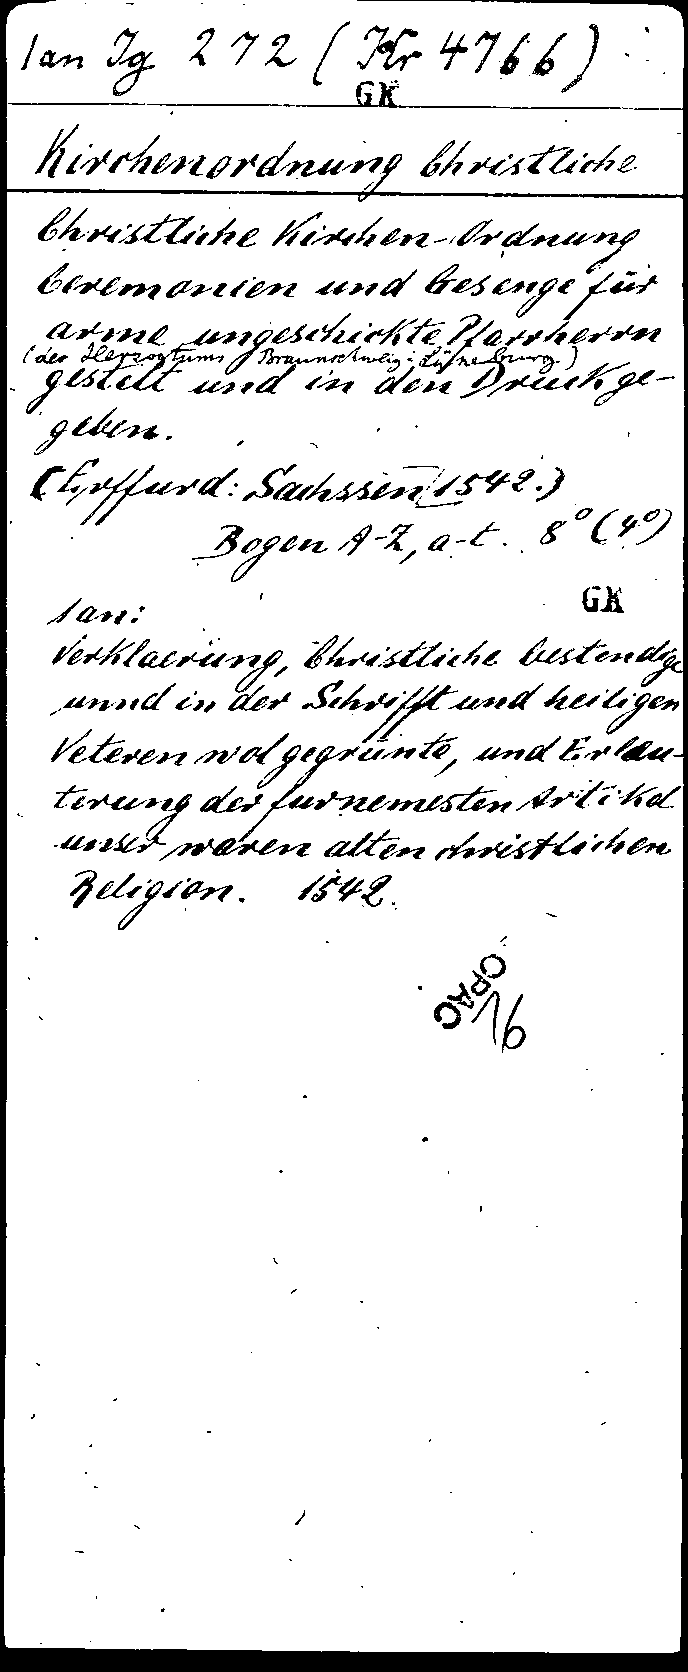 1 an Jg 272 (Kr 4766)
GK
Kirchenordnung Christliche
Christliche Kirchen-Ordnung
Ceremonien und Gesenge für
arme ungeschickte Pfarrherrn
(des Herzogtums Braunschweig-Lüneburg)
gestelt und in den Druck ge-
geben.
(Erffurd: Sachssen 1542.)
Bogen A-Z, a-t. 8° (4°)
GK
1 an:
Verklaerung, Christliche bestendige
unnd in der Schrifft und heiligen
Veteren wol gegrünte, und Erläu-
terung der furnemesten Artikel
unser waren alten christlichen
Religion. 1542.
OPAC
96